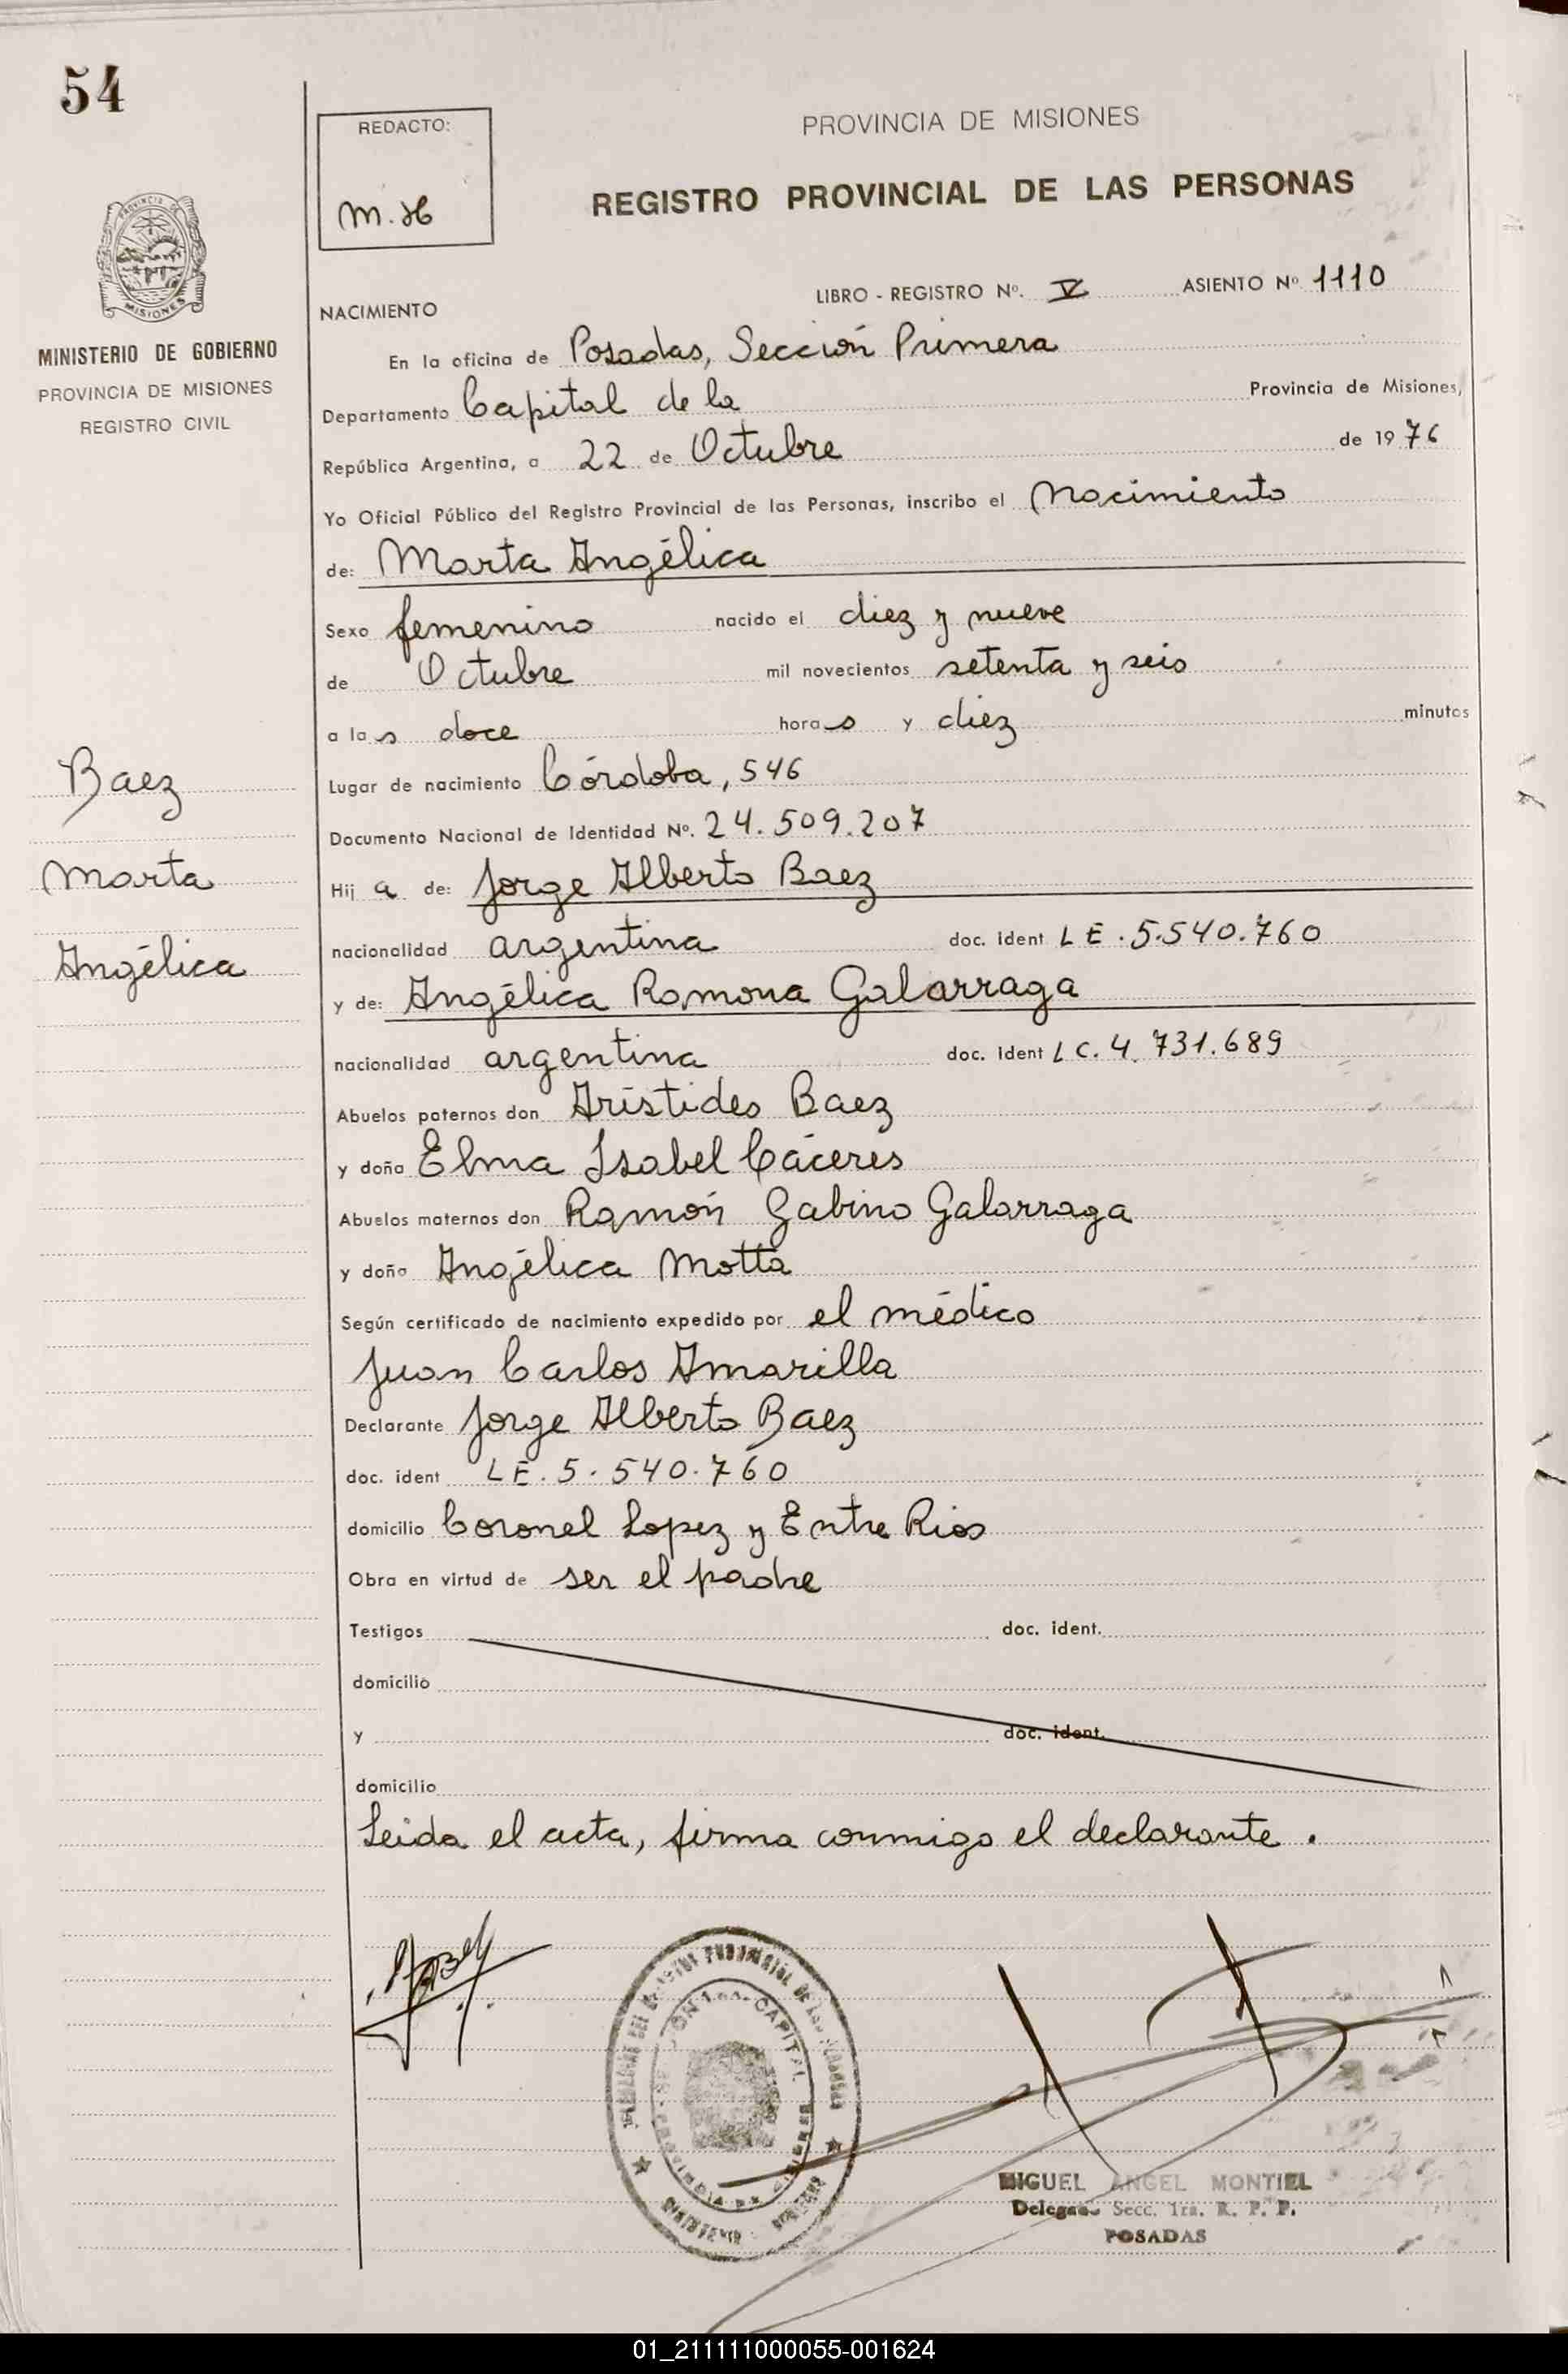 54
REDACTO:
M. H
PROVINCIA DE MISIONES
REGISTRO PROVINCIAL DE LAS PERSONAS
PROVINCIA
MISIONES
MINISTERIO DE GOBIERNO
PROVINCIA DE MISIONES
REGISTRO CIVIL
LIBRO - REGISTRO Nº. V ASIENTO Nº 1110
NACIMIENTO
En la oficina de Posadas, Sección Primera
Departamento Capital de la Provincia de Misiones,
República Argentina, a 22 de Octubre de 1976
Yo Oficial Público del Registro Provincial de las Personas, inscribo el Nacimiento
de: Marta Angélica
Sexo femenino nacido el diez y nueve
de Octubre mil novecientos setenta y seis
a las doce horas y diez minutos
Lugar de nacimiento Córdoba, 546
Documento Nacional de Identidad Nº. 24.509.207
Hija de: Jorge Alberto Baez
nacionalidad argentina doc. ident LE. 5.540.760
y de: Angélica Ramona Galarraga
nacionalidad argentina doc. Ident LC. 4.731.689
Abuelos paternos don Arístides Baez
y doña Elma Isabel Cáceres
Abuelos maternos don Ramón Gabino Galarraga
y doña Angélica Motta
Según certificado de nacimiento expedido por el médico
Juan Carlos Amarilla
Declarante Jorge Alberto Baez
doc. ident LE. 5.540.760
domicilio Coronel Lopez y Entre Rios
Obra en virtud de ser el padre
Testigos doc. ident.
domicilio
y doc. ident.
domicilio
Leida el acta, firma conmigo el declarante.
Baez
Marta
Angélica
CAPITAL
MIGUEL ANGEL MONTIEL
Delegado Secc. 1ra. R. P. P.
POSADAS
01_211111000055-001624